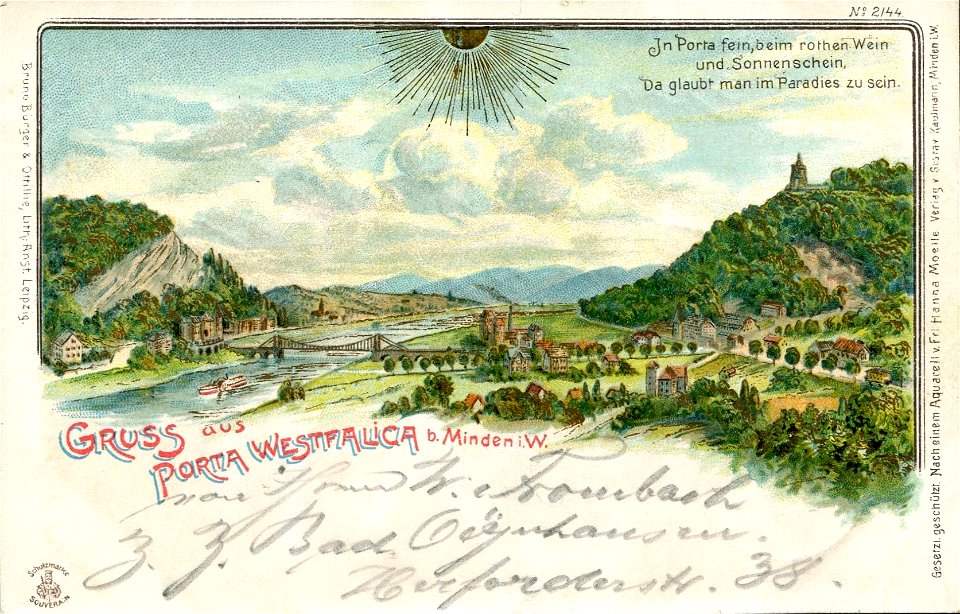 No 2144
In Porta fein, beim rothen Wein
und Sonnenschein,
Da glaubt man im Paradies zu sein.
Bruno Bürger & Ottillie, Lith. Anst. Leipzig.
Gesetzl. geschützt. Nach einem Aquarell v. Frl Hanna Moelle Verlag v. Gustav Kaufmann, Minden i.W.
GRUSS aus
PORTA WESTFALICA b. Minden i.W.
von W. Trombach
Z. Z. Bad Oeynhausen.
Herforderstr. 38.
Schutzmarke
SOUVERAIN